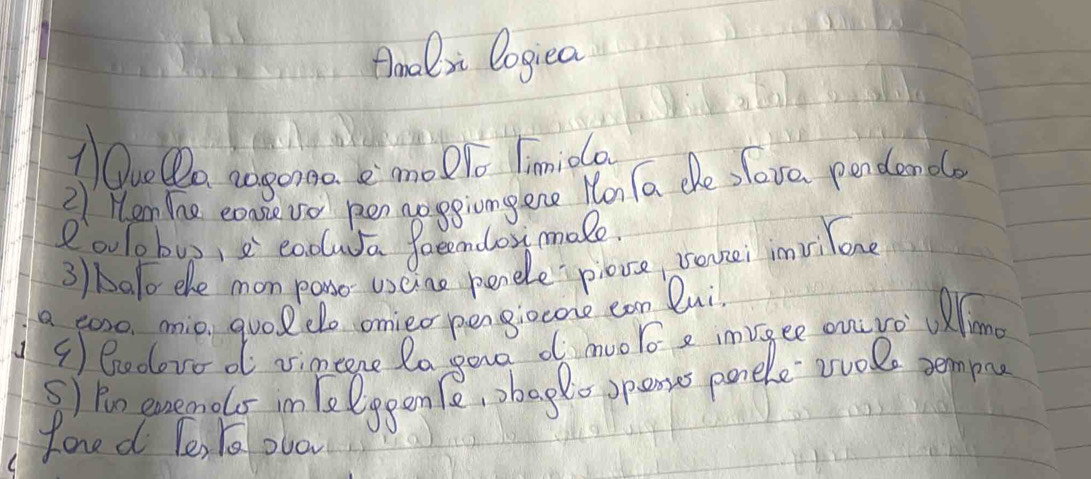 Analisi logica
1) Quella ragazza è molto timida
2) Mentre correvo per raggiungere Marta che stava perdendo
l'autobus, è caduta facendosi male.
3) Dato che non posso uscire perché piove, vorrei invitare
a casa mia qualche amico per giocare con lui.
4) Credevo di vincere la gara di nuoto e invece arrivò ultimo
5) Pur essendo intelligente, sbaglio spesso perché vuole sempre
fare di testa sua